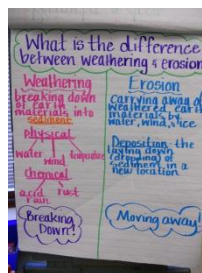 What is the difference
between weathering & erosion
Weathering
breaking down
of earth
materials into
sediment
physical
water wind temperature
chemical
acid rain rust
Breaking
Down!
Erosion
Carrying away of
weathered earth
materials by
water, wind, & ice
Deposition - the
laying down
(dropping) of
sediment in a
new location
Moving away!